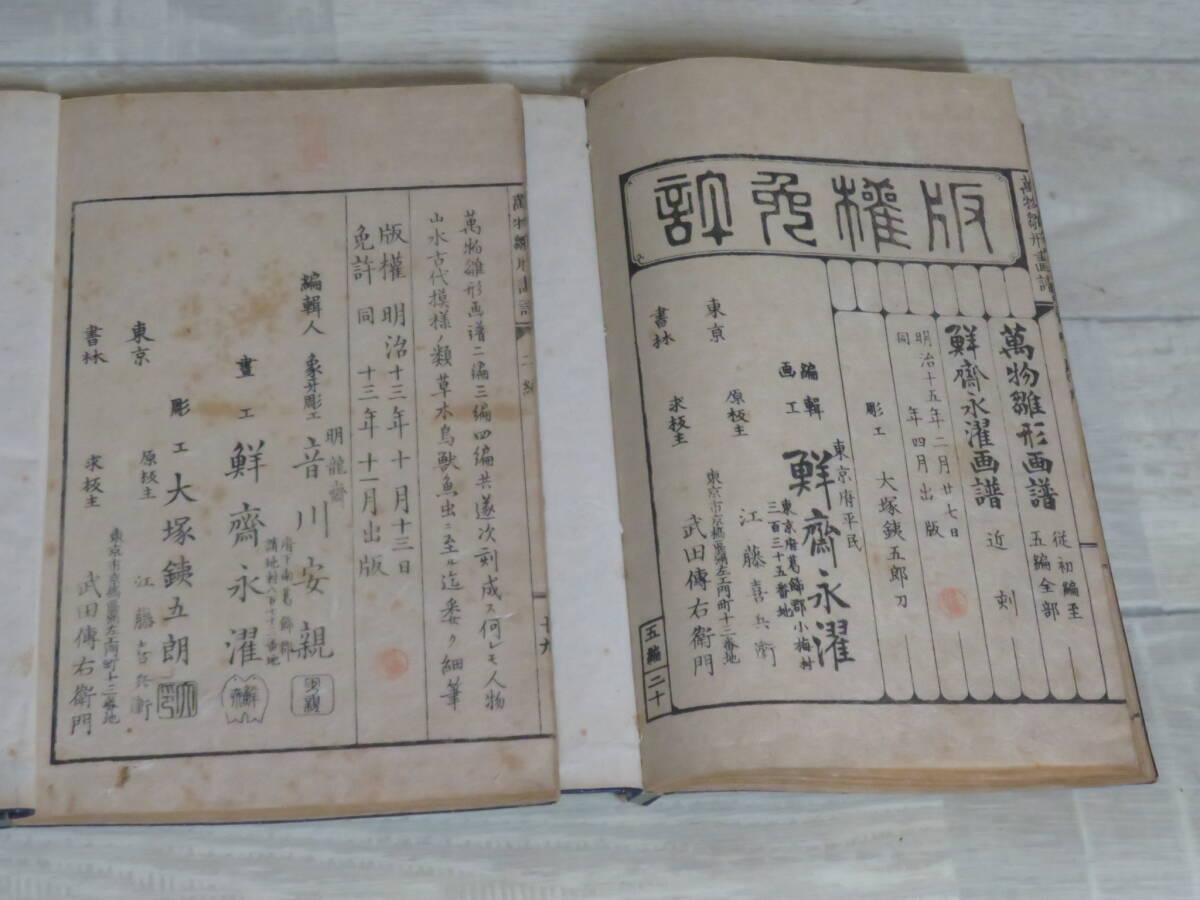 版權免許
萬物雛形画譜
従初編至
五編全部
鮮齋永濯画譜
近刻
明治十五年二月廿七日
同年四月出版
彫工 大塚銕五郎刀
東京府平民
編輯
画工
鮮齋永濯
東京府葛飾郡小梅村
三百三十五番地
原板主 江藤喜兵衛
東京
書林
求板主
武田傳右衛門
萬物雛形画譜
五編 二十
萬物雛形画譜二編三編四編共遂次刻成ス何レモ人物
山水古代摸様ノ類草木鳥獣魚虫ニ至ル迄委ク細筆
版權 明治十三年十月十三日
免許 同 十三年十一月出版
編輯人 象牙彫工 明龍齋 音川安親
畫工 鮮齋永濯
彫工 大塚銕五朗
東京
書林
原板主 江藤喜兵衛
求板主
武田傳右衛門